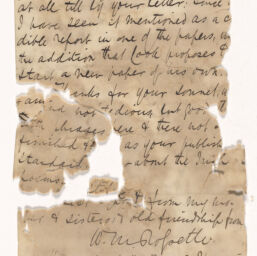 at all till by your letter: since
I have seen it mentioned as a c
dible report in one of the papers, w
the addition that Cook proposes to
start a new paper of his own.
Thanks for your Sonnet, g
and not tedious, but good
phrases here & there not
finished to as your publish
standard about the
poems.
& from my mo
& sister's old friendship from
W. M. Rossetti